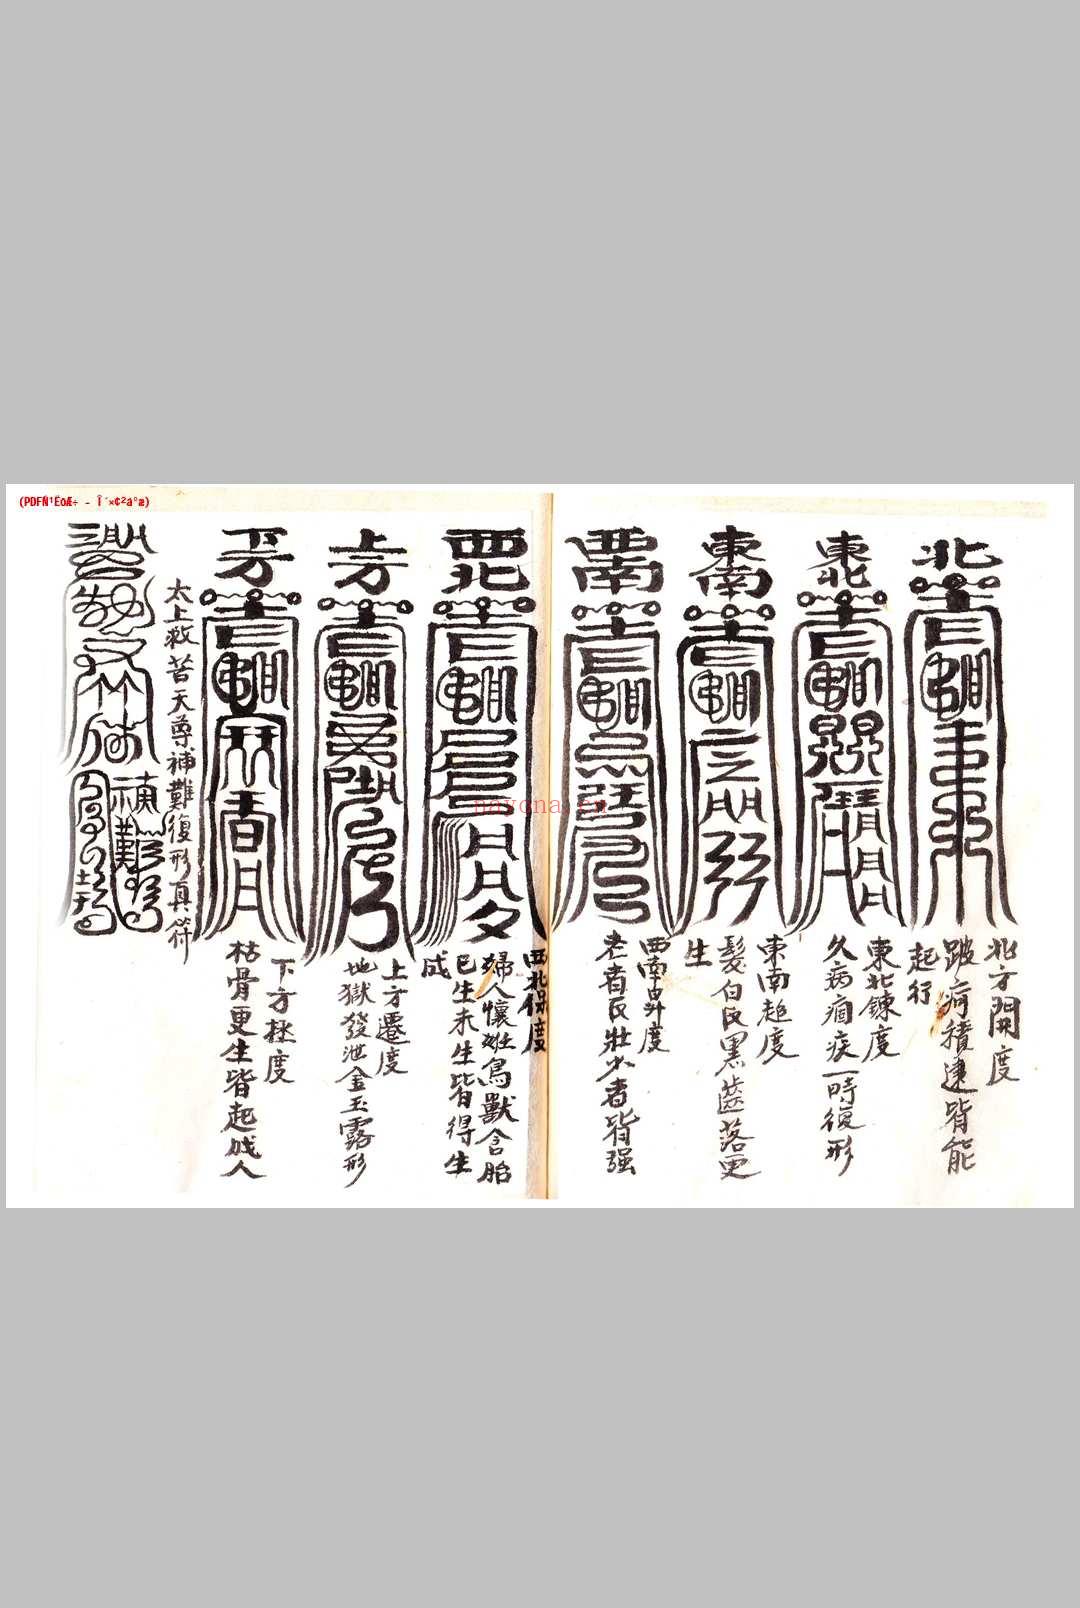 (PDFÑ¹ËõÆ÷ - Î´×¢²á°æ)
北
北方開度
跛痾積逮皆能
起行
東北
東北鍊度
久病痼疾一時復形
東南
東南超度
髮白反黑齒落更
生
西南
西南昇度
老者反壯少者皆强
西北
西北保度
婦人懷妊鳥獸含胎
已生未生皆得生
成
上方
上方遷度
地獄發泄金玉露形
下方
下方拯度
枯骨更生皆起成人
太上救苦天尊補難復形真符
nayona.cn